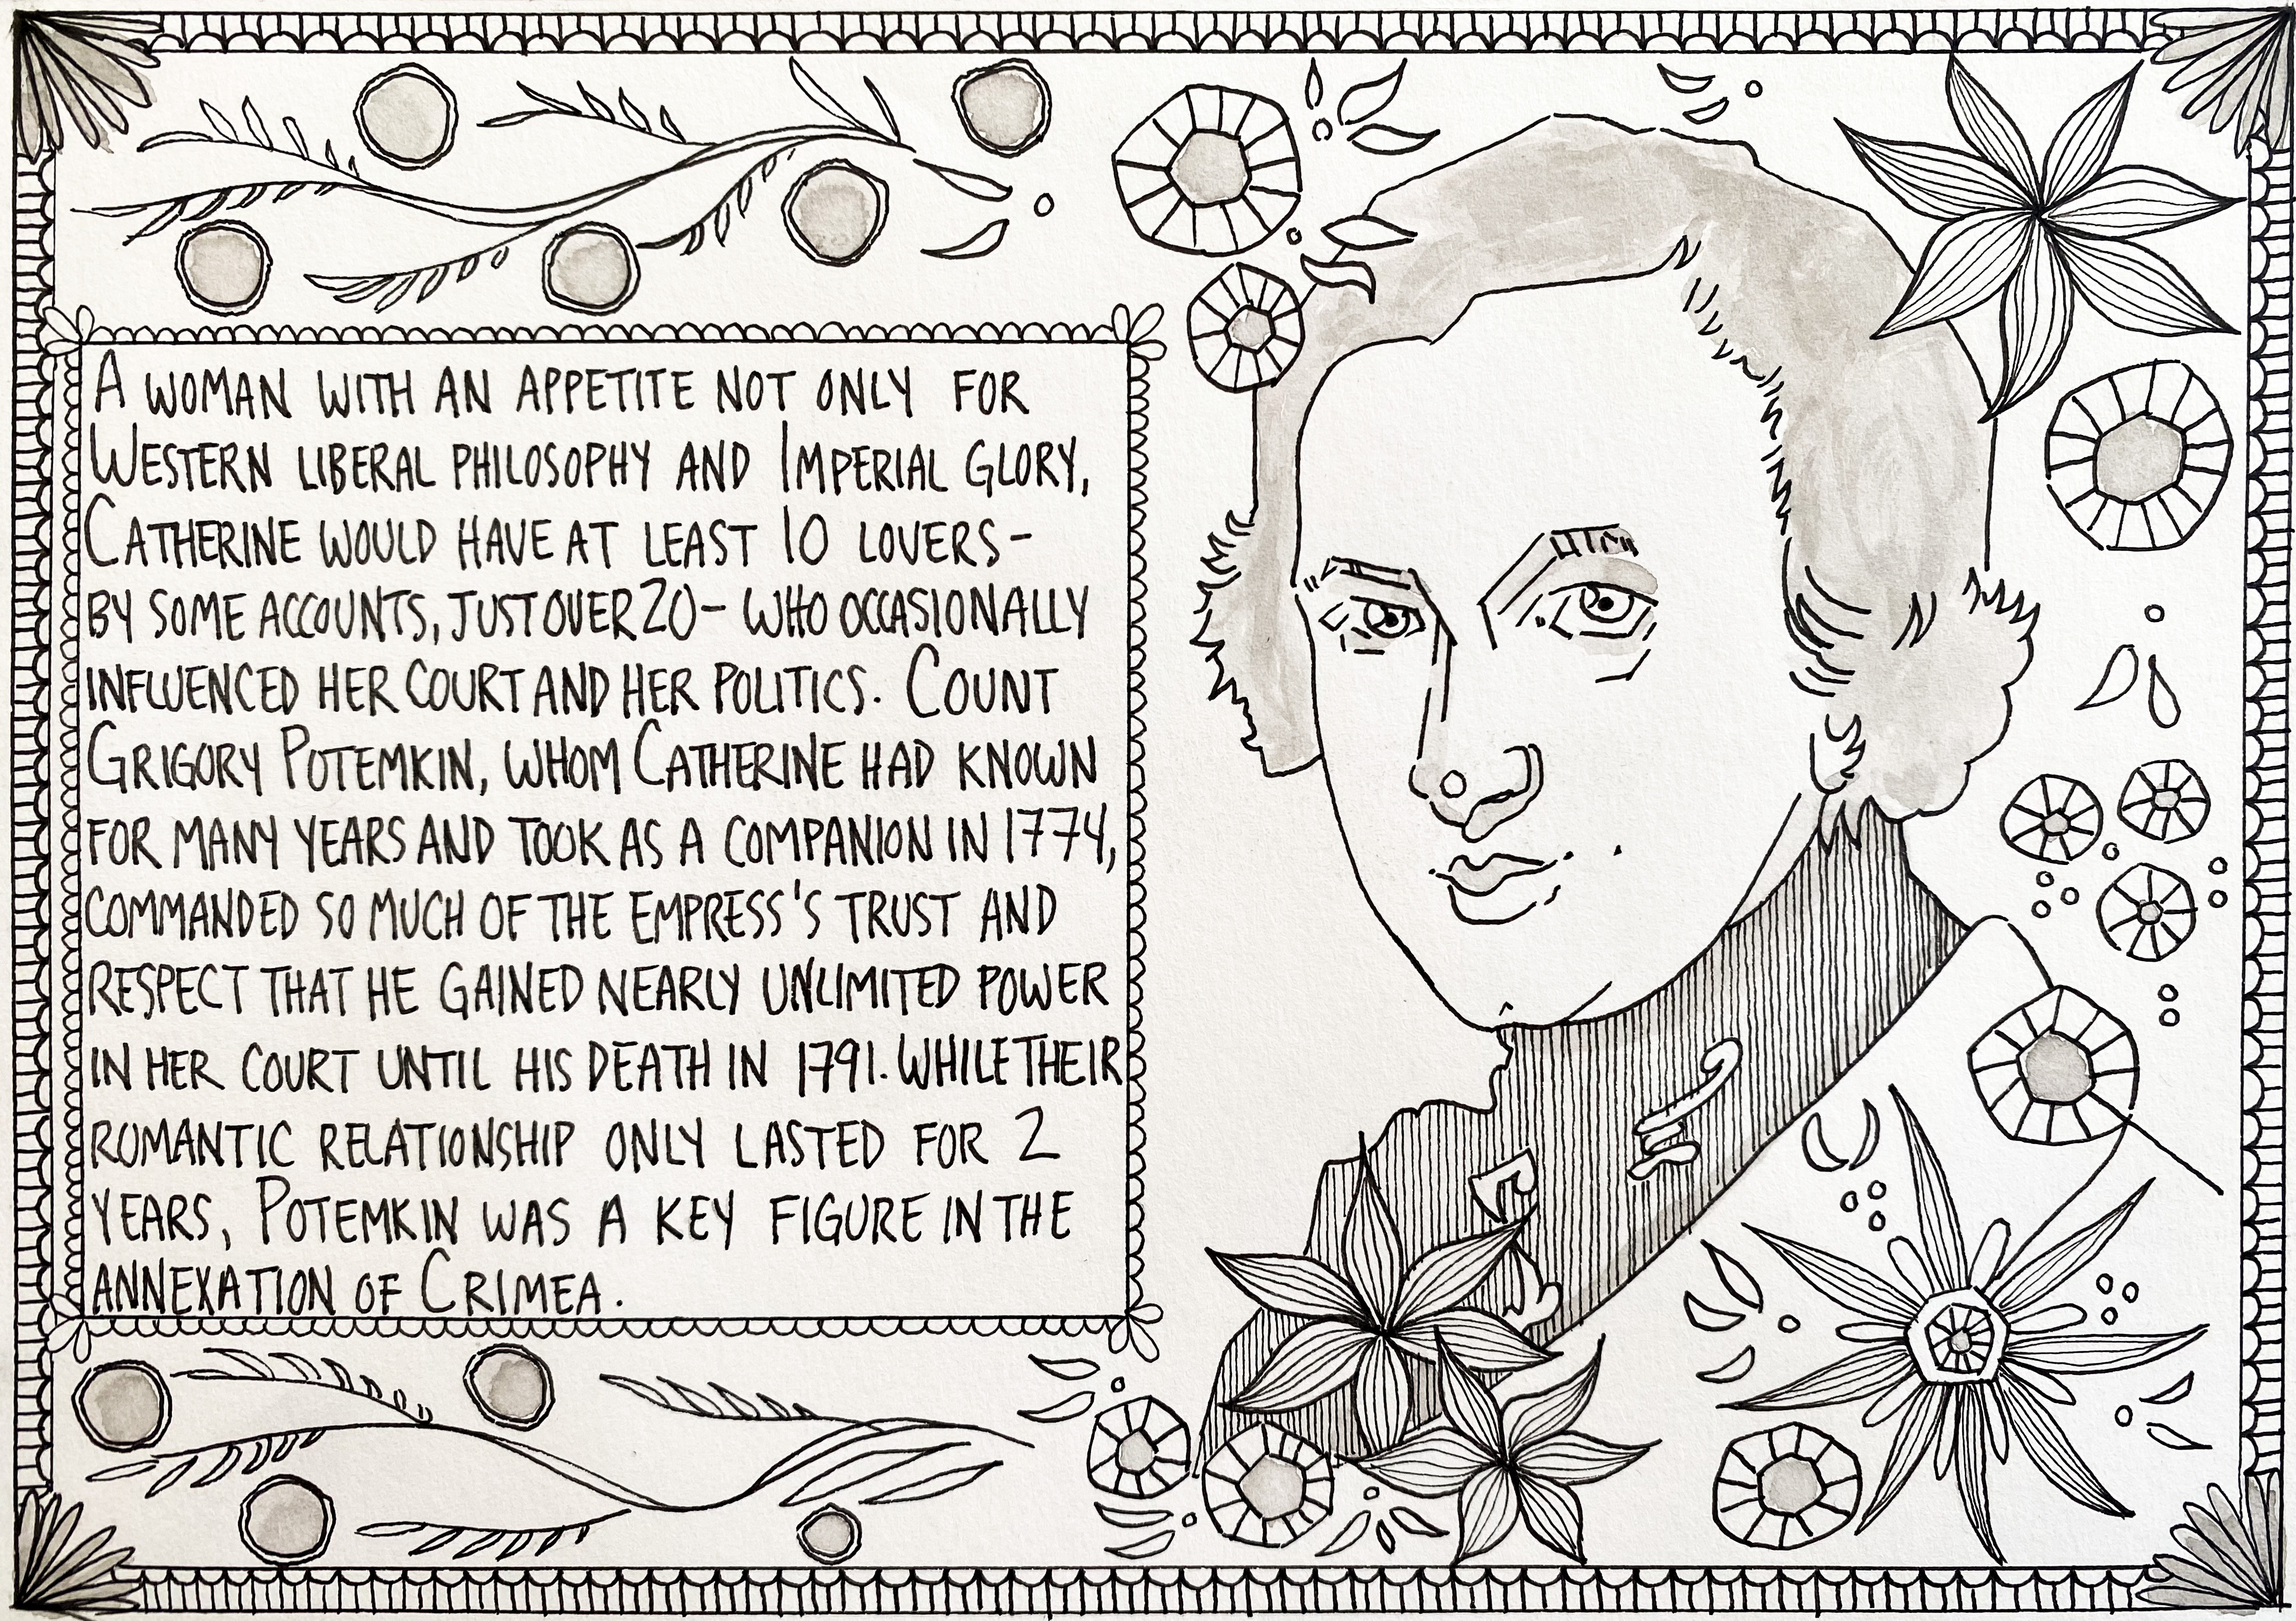 A WOMAN WITH AN APPETITE NOT ONLY FOR
WESTERN LIBERAL PHILOSOPHY AND IMPERIAL GLORY,
CATHERINE WOULD HAVE AT LEAST 10 LOVERS-
BY SOME ACCOUNTS, JUST OVER 20- WHO OCCASIONALLY
INFLUENCED HER COURT AND HER POLITICS. COUNT
GRIGORY POTEMKIN, WHOM CATHERINE HAD KNOWN
FOR MANY YEARS AND TOOK AS A COMPANION IN 1774,
COMMANDED SO MUCH OF THE EMPRESS'S TRUST AND
RESPECT THAT HE GAINED NEARLY UNLIMITED POWER
IN HER COURT UNTIL HIS DEATH IN 1791. WHILE THEIR
ROMANTIC RELATIONSHIP ONLY LASTED FOR 2
YEARS, POTEMKIN WAS A KEY FIGURE IN THE
ANNEXATION OF CRIMEA.